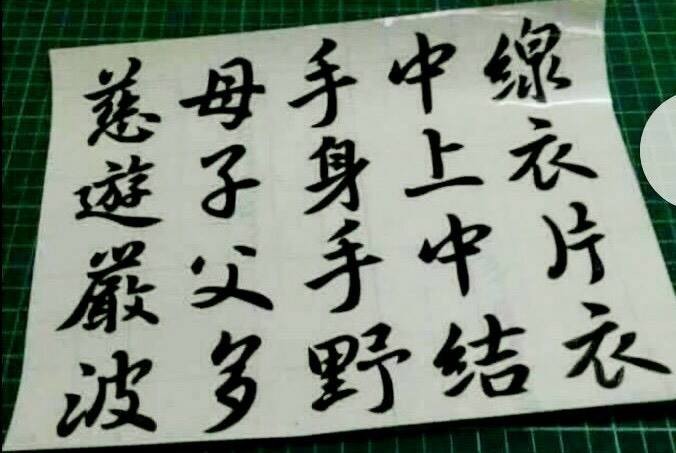 慈母手中線
遊子身上衣
嚴父手中片
波多野結衣